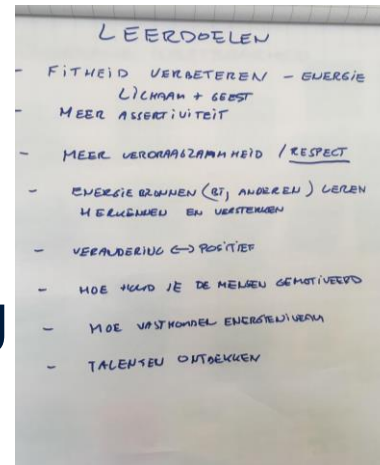 LEERDOELEN
- FITHEID VERBETEREN - ENERGIE
LICHAAM + GEEST
- MEER ASSERTIVITEIT
- MEER VERDRAAGZAAMHEID / RESPECT
- ENERGIE BRONNEN (BT, ANDEREN) LEREN
HERKENNEN EN VERSTERKEN
- VERANDERING <-> POSITIEF
- HOE HOUD JE DE MENSEN GEMOTIVEERD
- HOE VASTHOUDEN ENERGIENIVEAU
- TALENTEN ONTDEKKEN